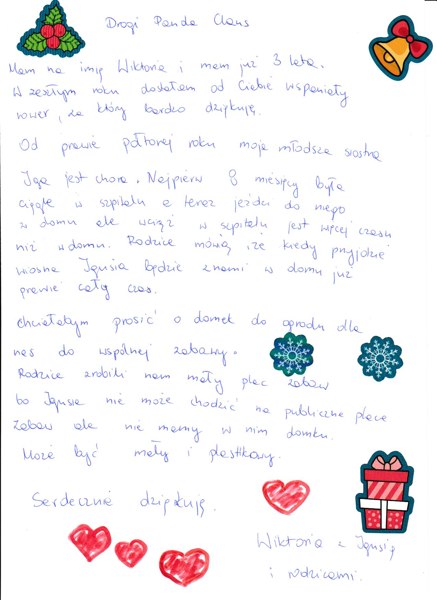 Drogi Panda Claus
Mam na imię Wiktoria i mam już 3 lata.
W zeszłym roku dostałam od Ciebie wspaniały
rower, za który bardzo dziękuję.
Od prawie półtorej roku moja młodsza siostra
Iga jest chora. Najpierw 8 miesięcy była
ciągle w szpitalu a teraz jeździ do niego
w domu ale wciąż w szpitalu jest więcej czasu
niż w domu. Rodzice mówią, że kiedy przyjdzie
wiosna Igusia będzie z nami w domu już
prawie cały czas.
Chciałabym prosić o domek do ogrodu dla
nas do wspólnej zabawy.
Rodzice zrobili nam mały plac zabaw
bo Igusia nie może chodzić na publiczne place
zabaw ale nie mamy w nim domku.
Może być mały i plastikowy.
Serdecznie dziękuję.
Wiktoria z Igusią
i rodzicami.